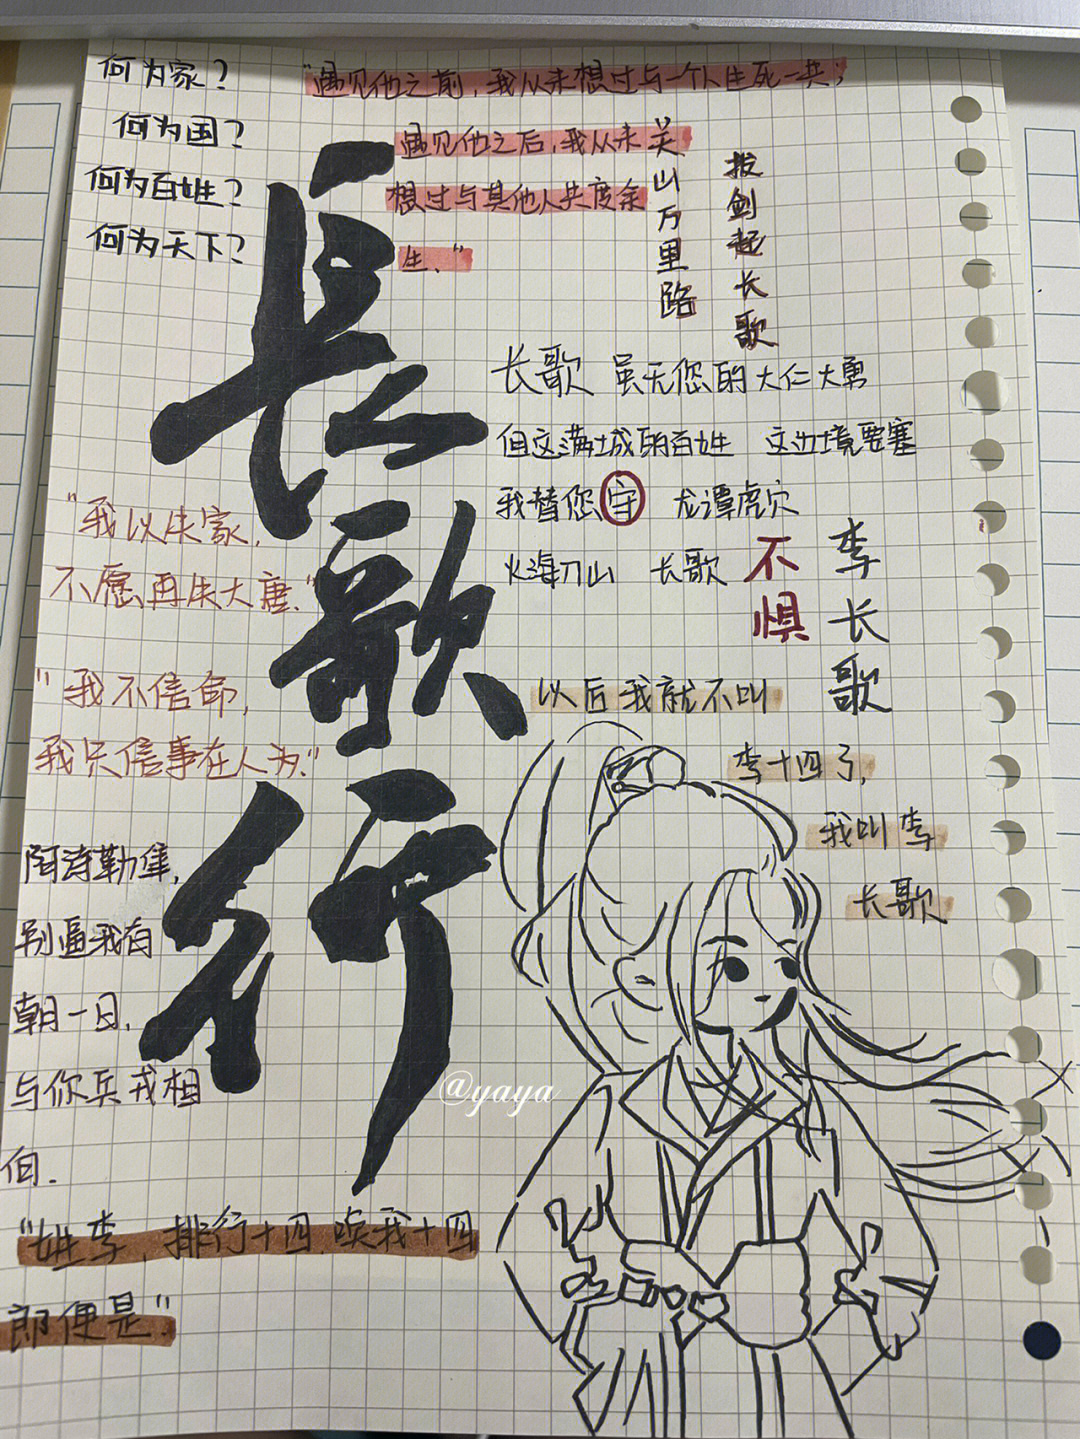 何为家?
何为国?
何为百姓?
何为天下?
"遇见他之前,我从未想过与一个人生死一共;
遇见他之后,我从未
想过与其他人共度余
生."
关山万里路
拔剑起长歌
長歌行
长歌 虽无您的大仁大勇
但这满城的百姓 这边境要塞
我替您守 龙潭虎穴
火海刀山 长歌 不惧
李长歌
"我以失家,
不愿再失大唐."
"我不信命,
我只信事在人为."
以后我就不叫
李十四了,
我叫李
长歌
阿诗勒隼,
别逼我有
朝一日,
与你兵戎相
伹.
@yaya
"姓李,排行十四,唤我十四
即便是"